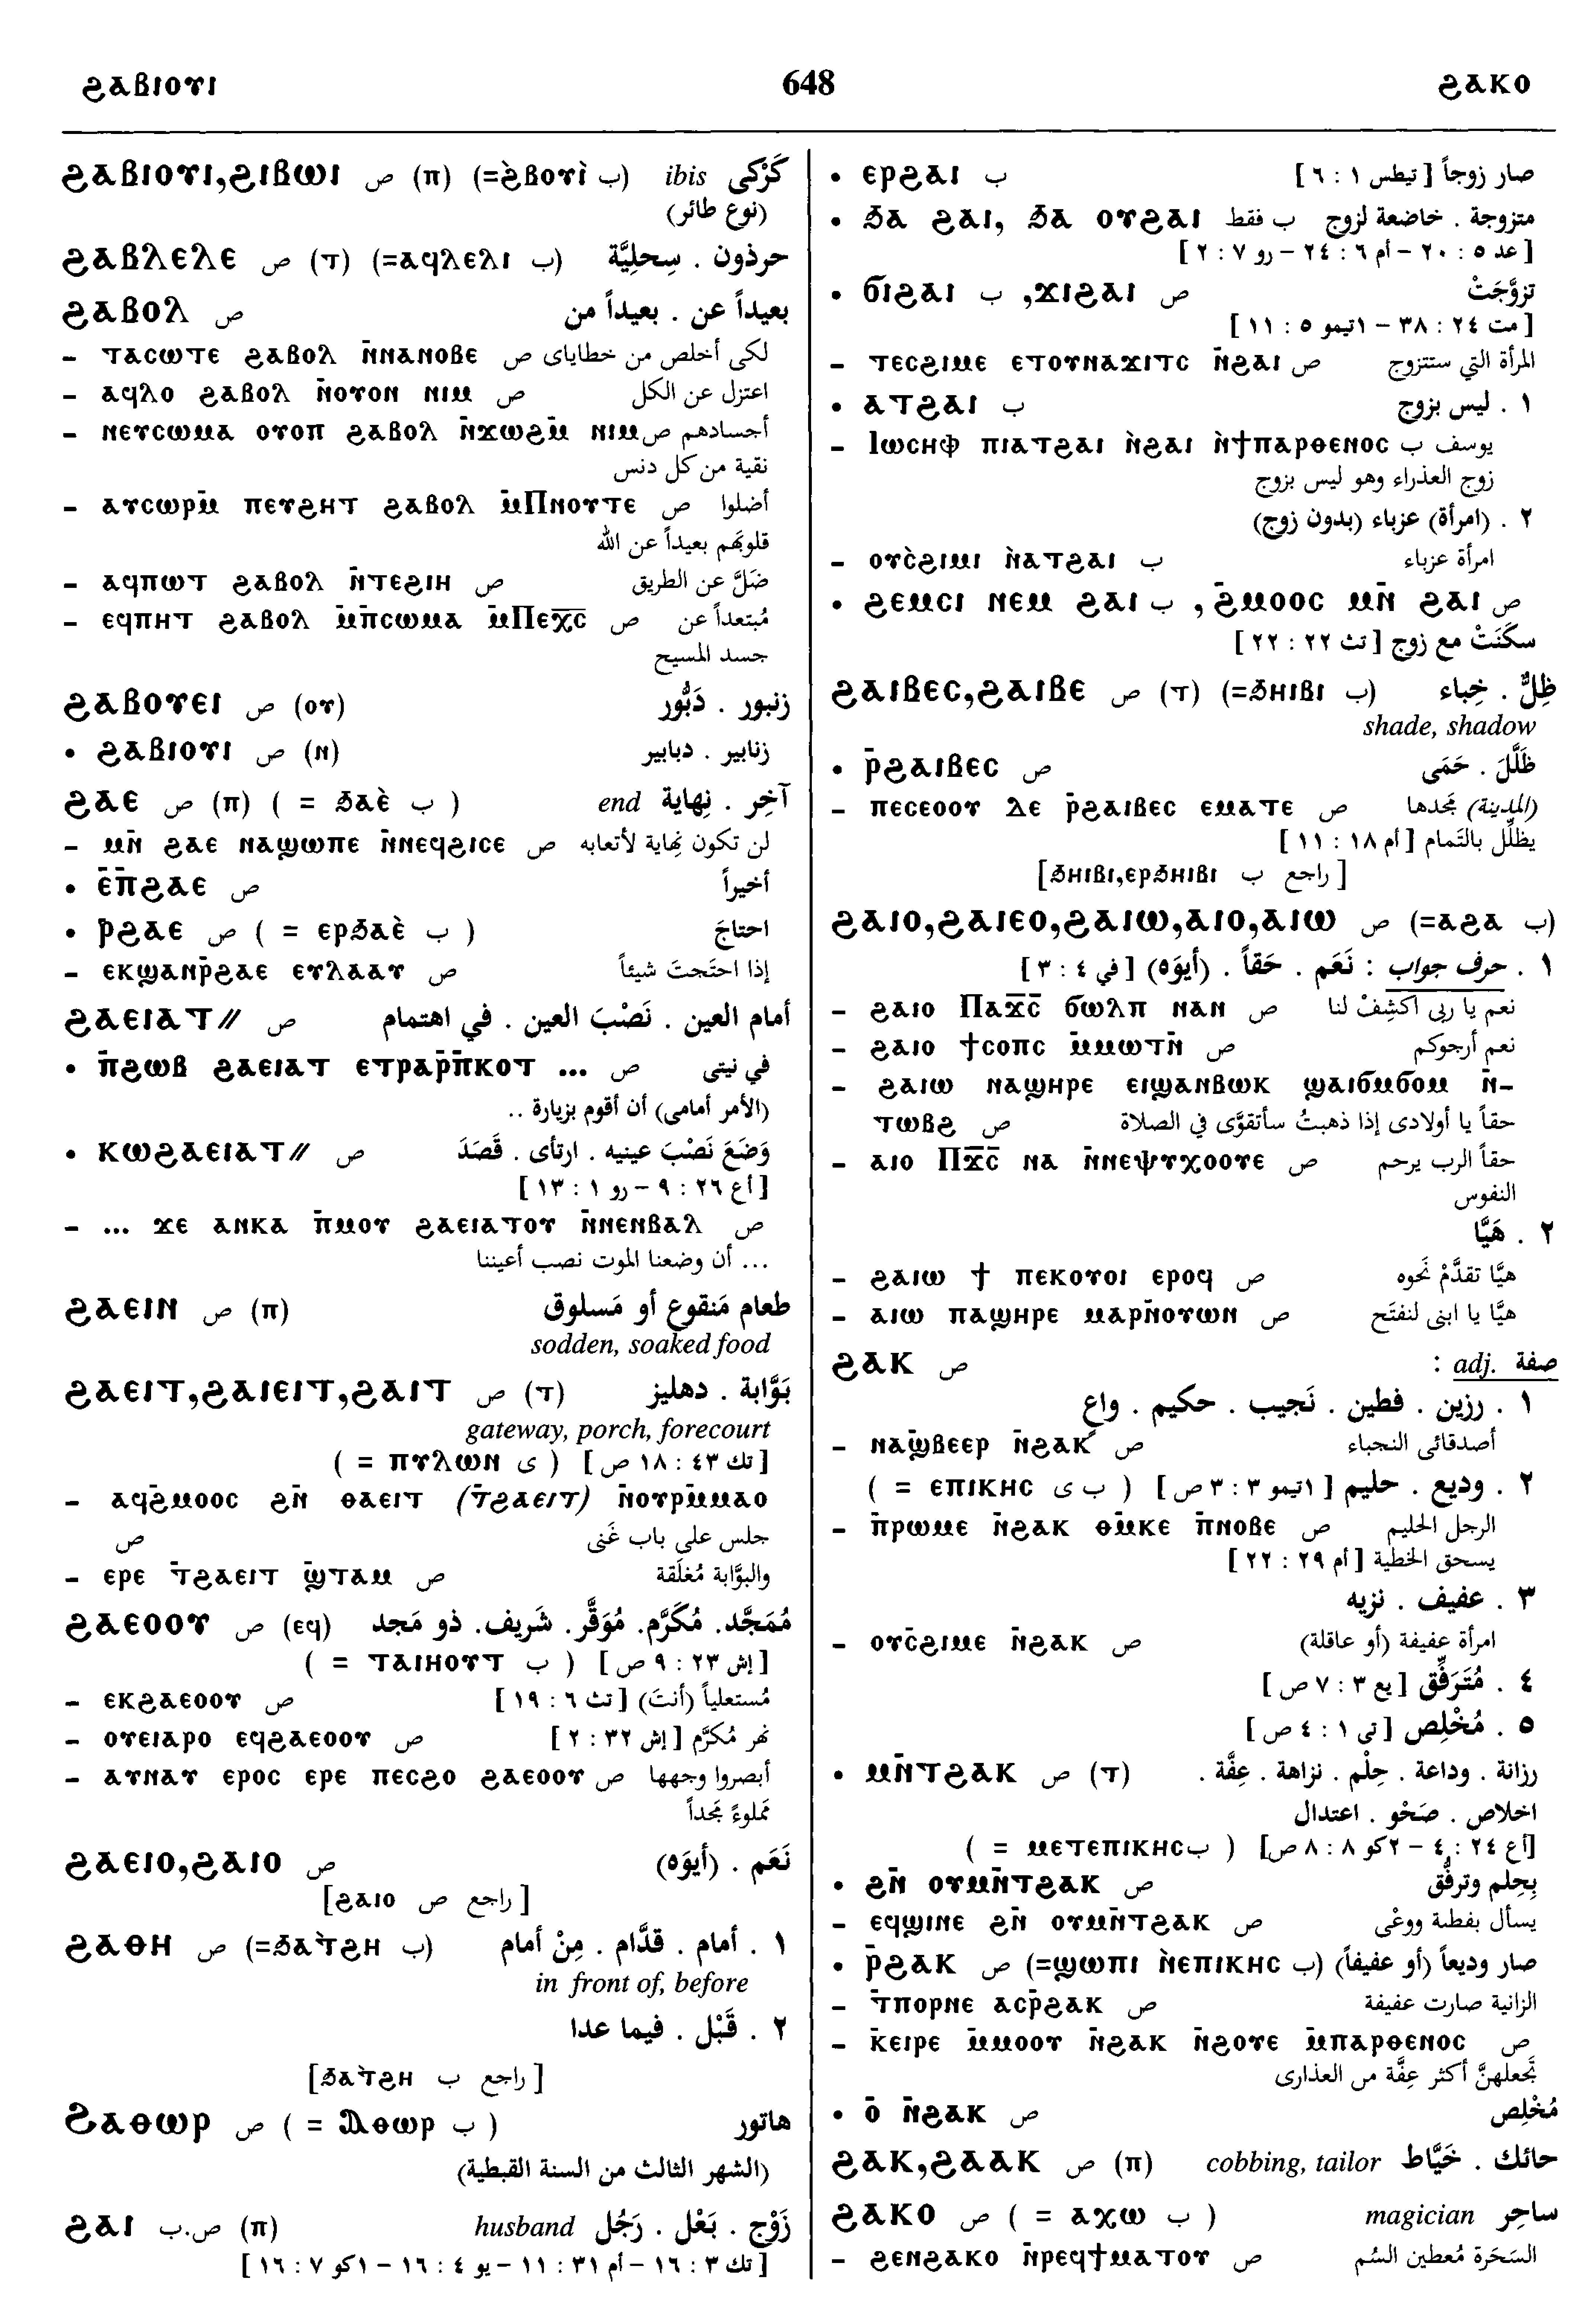 ϩⲁⲃⲓⲟⲩⲓ 648 ϩⲁⲕⲟ
ϩⲁⲃⲓⲟⲩⲓ,ϩⲓⲃⲱⲓ ص (ⲡ) (=ϩ̀ⲃⲟⲩⲓ̀ ب) ibis كَرْكى
(نوع طائر)
ϩⲁⲃⲗⲉⲗⲉ ص (ⲧ) (=ⲁϥⲗⲉⲗⲓ ب) حرذون . سِحلِيَّة
ϩⲁⲃⲟⲗ ص بعيداً عن . بعيداً من
– ⲧⲁⲥⲱⲧⲉ ϩⲁⲃⲟⲗ ⲛ̄ⲛⲁⲛⲟⲃⲉ ص لكى أخلص من خطاياى
– ⲁϥⲗⲟ ϩⲁⲃⲟⲗ ⲛ̄ⲟⲩⲟⲛ ⲛⲓⲙ ص اعتزل عن الكل
– ⲛⲉⲩⲥⲱⲙⲁ ⲟⲩⲟⲡ ϩⲁⲃⲟⲗ ⲛ̄ϫⲱϩⲙ̄ ⲛⲓⲙ ص أجسادهم
نقية من كل دنس
– ⲁⲩⲥⲱⲣⲙ̄ ⲡⲉⲩϩⲏⲧ ϩⲁⲃⲟⲗ ⲙ̄Ⲡⲛⲟⲩⲧⲉ ص أضلوا
قلوبَهم بعيداً عن الله
– ⲁϥⲡⲱⲧ ϩⲁⲃⲟⲗ ⲛ̄ⲧⲉϩⲓⲏ ص ضَلَّ عن الطريق
– ⲉϥⲡⲏⲧ ϩⲁⲃⲟⲗ ⲙ̄ⲡ̄ⲥⲱⲙⲁ ⲙ̄Ⲡⲉⲭ̄ⲥ̄ ص مُبتعداً عن
جسد المسيح
ϩⲁⲃⲟⲩⲉⲓ ص (ⲟⲩ) زنبور . دَبُّور
• ϩⲁⲃⲓⲟⲩⲓ ص (ⲛ) زنابير . دبابير
ϩⲁⲉ ص (ⲡ) ( = ϧⲁⲉ̀ ب ) end آخِر . نِهاية
– ⲙⲛ̄ ϩⲁⲉ ⲛⲁϣⲱⲡⲉ ⲛ̄ⲛⲉϥϩⲓⲥⲉ ص لن تكون نهاية لأتعابه
• ⲉ̄ⲡ̄ϩⲁⲉ ص أخيراً
• ⲣ̄ϩⲁⲉ ص ( = ⲉⲣϧⲁⲉ̀ ب ) احتاجَ
– ⲉⲕϣⲁⲛⲣ̄ϩⲁⲉ ⲉⲩⲗⲁⲁⲩ ص إذا احتَجتَ شيئاً
ϩⲁⲉⲓⲁⲧ// ص أمام العين . نَصْبَ العين . في اهتمام
• ⲛ̄ϩⲱⲃ ϩⲁⲉⲓⲁⲧ ⲉⲧⲣⲁⲣ̄ⲡ̄ⲕⲟⲧ ... ص في نيتى
(الأمر أمامى) أن أقوم بزيارة ..
• ⲕⲱϩⲁⲉⲓⲁⲧ// ص وَضَعَ نَصْبَ عينيه . ارتأى . قَصَدَ
[أع ٢٦ : ٩ – رو ١ : ١٣]
– ... ϫⲉ ⲁⲛⲕⲁ ⲡ̄ⲙⲟⲩ ϩⲁⲉⲓⲁⲧⲟⲩ ⲛ̄ⲛⲉⲛⲃⲁⲗ ص
... أن وضعنا الموت نصب أعيننا
ϩⲁⲉⲓⲛ ص (ⲡ) طعام مَنقوع أو مَسلوق
sodden, soaked food
ϩⲁⲉⲓⲧ,ϩⲁⲓⲉⲓⲧ,ϩⲁⲓⲧ ص (ⲧ) بَوَّابة . دهليز
gateway, porch, forecourt
[تك ٤٣ : ١٨ ص] ( ى ⲡⲩⲗⲱⲛ = )
– ⲁϥϩ̄ⲙⲟⲟⲥ ϩⲛ̄ ⲑⲁⲉⲓⲧ (ⲧ̄ϩⲁⲉⲓⲧ) ⲛ̄ⲟⲩⲣⲙ̄ⲙⲁⲟ
ص جلس على باب غَنى
– ⲉⲣⲉ ⲧ̄ϩⲁⲉⲓⲧ ϣ̄ⲧⲁⲙ ص والبوَّابة مُغلَقة
ϩⲁⲉⲟⲟⲩ ص (ⲉϥ) مُمَجَّد. مُكَرَّم. مُوَقَّر. شَريف. ذو مَجد
[إش ٢٣ : ٩ ص] ( ب ⲧⲁⲓⲏⲟⲩⲧ = )
– ⲉⲕϩⲁⲉⲟⲟⲩ ص مُستعلياً (أنتَ) [تث ٦ : ١٩]
– ⲟⲩⲉⲓⲁⲣⲟ ⲉϥϩⲁⲉⲟⲟⲩ ص نهر مُكرَّم [إش ٣٢ : ٢]
– ⲁⲩⲛⲁⲩ ⲉⲣⲟⲥ ⲉⲣⲉ ⲡⲉⲥϩⲟ ϩⲁⲉⲟⲟⲩ ص أبصروا وجهها
مملوءً مجداً
ϩⲁⲉⲓⲟ,ϩⲁⲓⲟ ص نَعَم . (أيوَه)
[راجع ص ϩⲁⲓⲟ]
ϩⲁⲑⲏ ص (=ϧⲁⲧ̀ϩⲏ ب) ١ . أمام . قدَّام . مِنْ أمام
in front of, before
٢ . قَبْل . فيما عدا
[راجع ب ϧⲁⲧ̀ϩⲏ]
Ϩⲁⲑⲱⲣ ص ( = Ⲁⲑⲱⲣ ب ) هاتور
(الشهر الثالث من السنة القبطية)
ϩⲁⲓ ص.ب (ⲡ) husband زَوْج . بَعْل . رَجُل
[تك ٣ : ١٦ – أم ٣١ : ١١ – يو ٤ : ١٦ – ١كو ٧ : ١٦]
• ⲉⲣϩⲁⲓ ب صار زوجاً [تيطس ١ : ٦]
• ϧⲁ ϩⲁⲓ, ϧⲁ ⲟⲩϩⲁⲓ ب فقط متزوجة . خاضعة لزوج
[عد ٥ : ٢٠ – أم ٦ : ٢٤ – رو ٧ : ٢]
• ϭⲓϩⲁⲓ ب ,ϫⲓϩⲁⲓ ص تزوَّجَتْ
[مت ٢٤ : ٣٨ – ١تيمو ٥ : ١١]
– ⲧⲉⲥϩⲓⲙⲉ ⲉⲧⲟⲩⲛⲁϫⲓⲧⲥ ⲛ̄ϩⲁⲓ ص المرأة التي ستتزوج
• ⲁⲧϩⲁⲓ ب ١ . ليس بزوج
– Ⲓⲱⲥⲏⲫ ⲡⲓⲁⲧϩⲁⲓ ⲛ̀ϩⲁⲓ ⲛ̀ϯⲡⲁⲣⲑⲉⲛⲟⲥ ب يوسف
زوج العذراء وهو ليس بزوج
٢ . (امرأة) عزباء (بدون زوج)
– ⲟⲩⲥ̀ϩⲓⲙⲓ ⲛ̀ⲁⲧϩⲁⲓ ب امرأة عزباء
• ϩⲉⲙⲥⲓ ⲛⲉⲙ ϩⲁⲓ ب , ϩ̄ⲙⲟⲟⲥ ⲙⲛ̄ ϩⲁⲓ ص
سكَنَتْ مع زوج [تث ٢٢ : ٢٢]
ϩⲁⲓⲃⲉⲥ,ϩⲁⲓⲃⲉ ص (ⲧ) (=ϧⲏⲓⲃⲓ ب) ظِلٌّ . خِباء
shade, shadow
• ⲣ̄ϩⲁⲓⲃⲉⲥ ص ظَلَّلَ . حَمَى
– ⲡⲉⲥⲉⲟⲟⲩ ⲇⲉ ⲣ̄ϩⲁⲓⲃⲉⲥ ⲉⲙⲁⲧⲉ ص (المدينة) مجدها
يظلِّل بالتَمام [أم ١٨ : ١١]
[راجع ب ϧⲏⲓⲃⲓ,ⲉⲣϧⲏⲓⲃⲓ]
ϩⲁⲓⲟ,ϩⲁⲓⲉⲟ,ϩⲁⲓⲱ,ⲁⲓⲟ,ⲁⲓⲱ ص (=ⲁϩⲁ ب)
١ . حرف جواب : نَعَم . حَقاً . (أيوَه) [في ٤ : ٣]
– ϩⲁⲓⲟ Ⲡⲁϫ̄ⲥ̄ ϭⲱⲗⲡ ⲛⲁⲛ ص نعم يا ربى اكشِفْ لنا
– ϩⲁⲓⲟ ϯⲥⲟⲡⲥ ⲙ̄ⲙⲱⲧⲛ̄ ص نعم أرجوكم
– ϩⲁⲓⲱ ⲛⲁϣⲏⲣⲉ ⲉⲓϣⲁⲛⲃⲱⲕ ϣⲁⲓϭⲙϭⲟⲙ ⲛ̄-
ⲧⲱⲃϩ ص حقاً يا أولادى إذا ذهبتُ سأتقوَّى في الصلاة
– ⲁⲓⲟ Ⲡϫ̄ⲥ̄ ⲛⲁ ⲛ̄ⲛⲉⲯⲩⲭⲟⲟⲩⲉ ص حقاً الرب يرحم
النفوس
٢ . هَيَّا
– ϩⲁⲓⲱ ϯ ⲡⲉⲕⲟⲩⲟⲓ ⲉⲣⲟϥ ص هيَّا تقدَّمْ نَحوه
– ⲁⲓⲱ ⲡⲁϣⲏⲣⲉ ⲙⲁⲣⲛ̄ⲟⲩⲱⲛ ص هيَّا يا ابنى لنفتَح
ϩⲁⲕ ص صفة adj. :
١ . رزين . فطين . نَجيب . حكيم . واعٍ
– ⲛⲁϣ̄ⲃⲉⲉⲣ ⲛ̄ϩⲁⲕ ص أصدقائى النجباء
٢ . وديع . حليم [١تيمو ٣ : ٣ ص] ( ب ى ⲉⲡⲓⲕⲏⲥ = )
– ⲡ̄ⲣⲱⲙⲉ ⲛ̄ϩⲁⲕ ⲑⲙ̄ⲕⲉ ⲡ̄ⲛⲟⲃⲉ ص الرجل الحليم
يسحق الخطية [أم ٢٩ : ٢٢]
٣ . عفيف . نزيه
– ⲟⲩⲥ̄ϩⲓⲙⲉ ⲛ̄ϩⲁⲕ ص امرأة عفيفة (أو عاقلة)
٤ . مُتَرَفِّق [يع ٣ : ٧ ص]
٥ . مُخْلِص [تى ١ : ٤ ص]
• ⲙⲛ̄ⲧϩⲁⲕ ص (ⲧ) رزانة . وداعة . حِلْم . نزاهة . عِفَّة .
اخلاص . صَحْو . اعتدال
[أع ٢٤ : ٤ – ٢كو ٨ : ٨ ص] ( بⲙⲉⲧⲉⲡⲓⲕⲏⲥ = )
• ϩⲛ̄ ⲟⲩⲙⲛ̄ⲧϩⲁⲕ ص بِحِلم وترفُّق
– ⲉϥϣⲓⲛⲉ ϩⲛ̄ ⲟⲩⲙⲛ̄ⲧϩⲁⲕ ص يسأل بفطنة ووعْى
• ⲣ̄ϩⲁⲕ ص (=ϣⲱⲡⲓ ⲛ̀ⲉⲡⲓⲕⲏⲥ ب) صار وديعاً (أو عفيفاً)
– ⲧ̄ⲡⲟⲣⲛⲉ ⲁⲥⲣ̄ϩⲁⲕ ص الزانية صارت عفيفة
– ⲕ̄ⲉⲓⲣⲉ ⲙ̄ⲙⲟⲟⲩ ⲛ̄ϩⲁⲕ ⲛ̄ϩⲟⲩⲉ ⲙ̄ⲡⲁⲣⲑⲉⲛⲟⲥ ص
تَجعلهنَّ أكثر عِفَّة من العذارى
• ⲟ̄ ⲛ̄ϩⲁⲕ ص مُخْلِص
ϩⲁⲕ,ϩⲁⲁⲕ ص (ⲡ) cobbing, tailor حائك . خَيَّاط
ϩⲁⲕⲟ ص ( = ⲁⲭⲱ ب ) magician ساحِر
– ϩⲉⲛϩⲁⲕⲟ ⲛ̄ⲣⲉϥϯⲙⲁⲧⲟⲩ ص السَحَرة مُعطين السُم